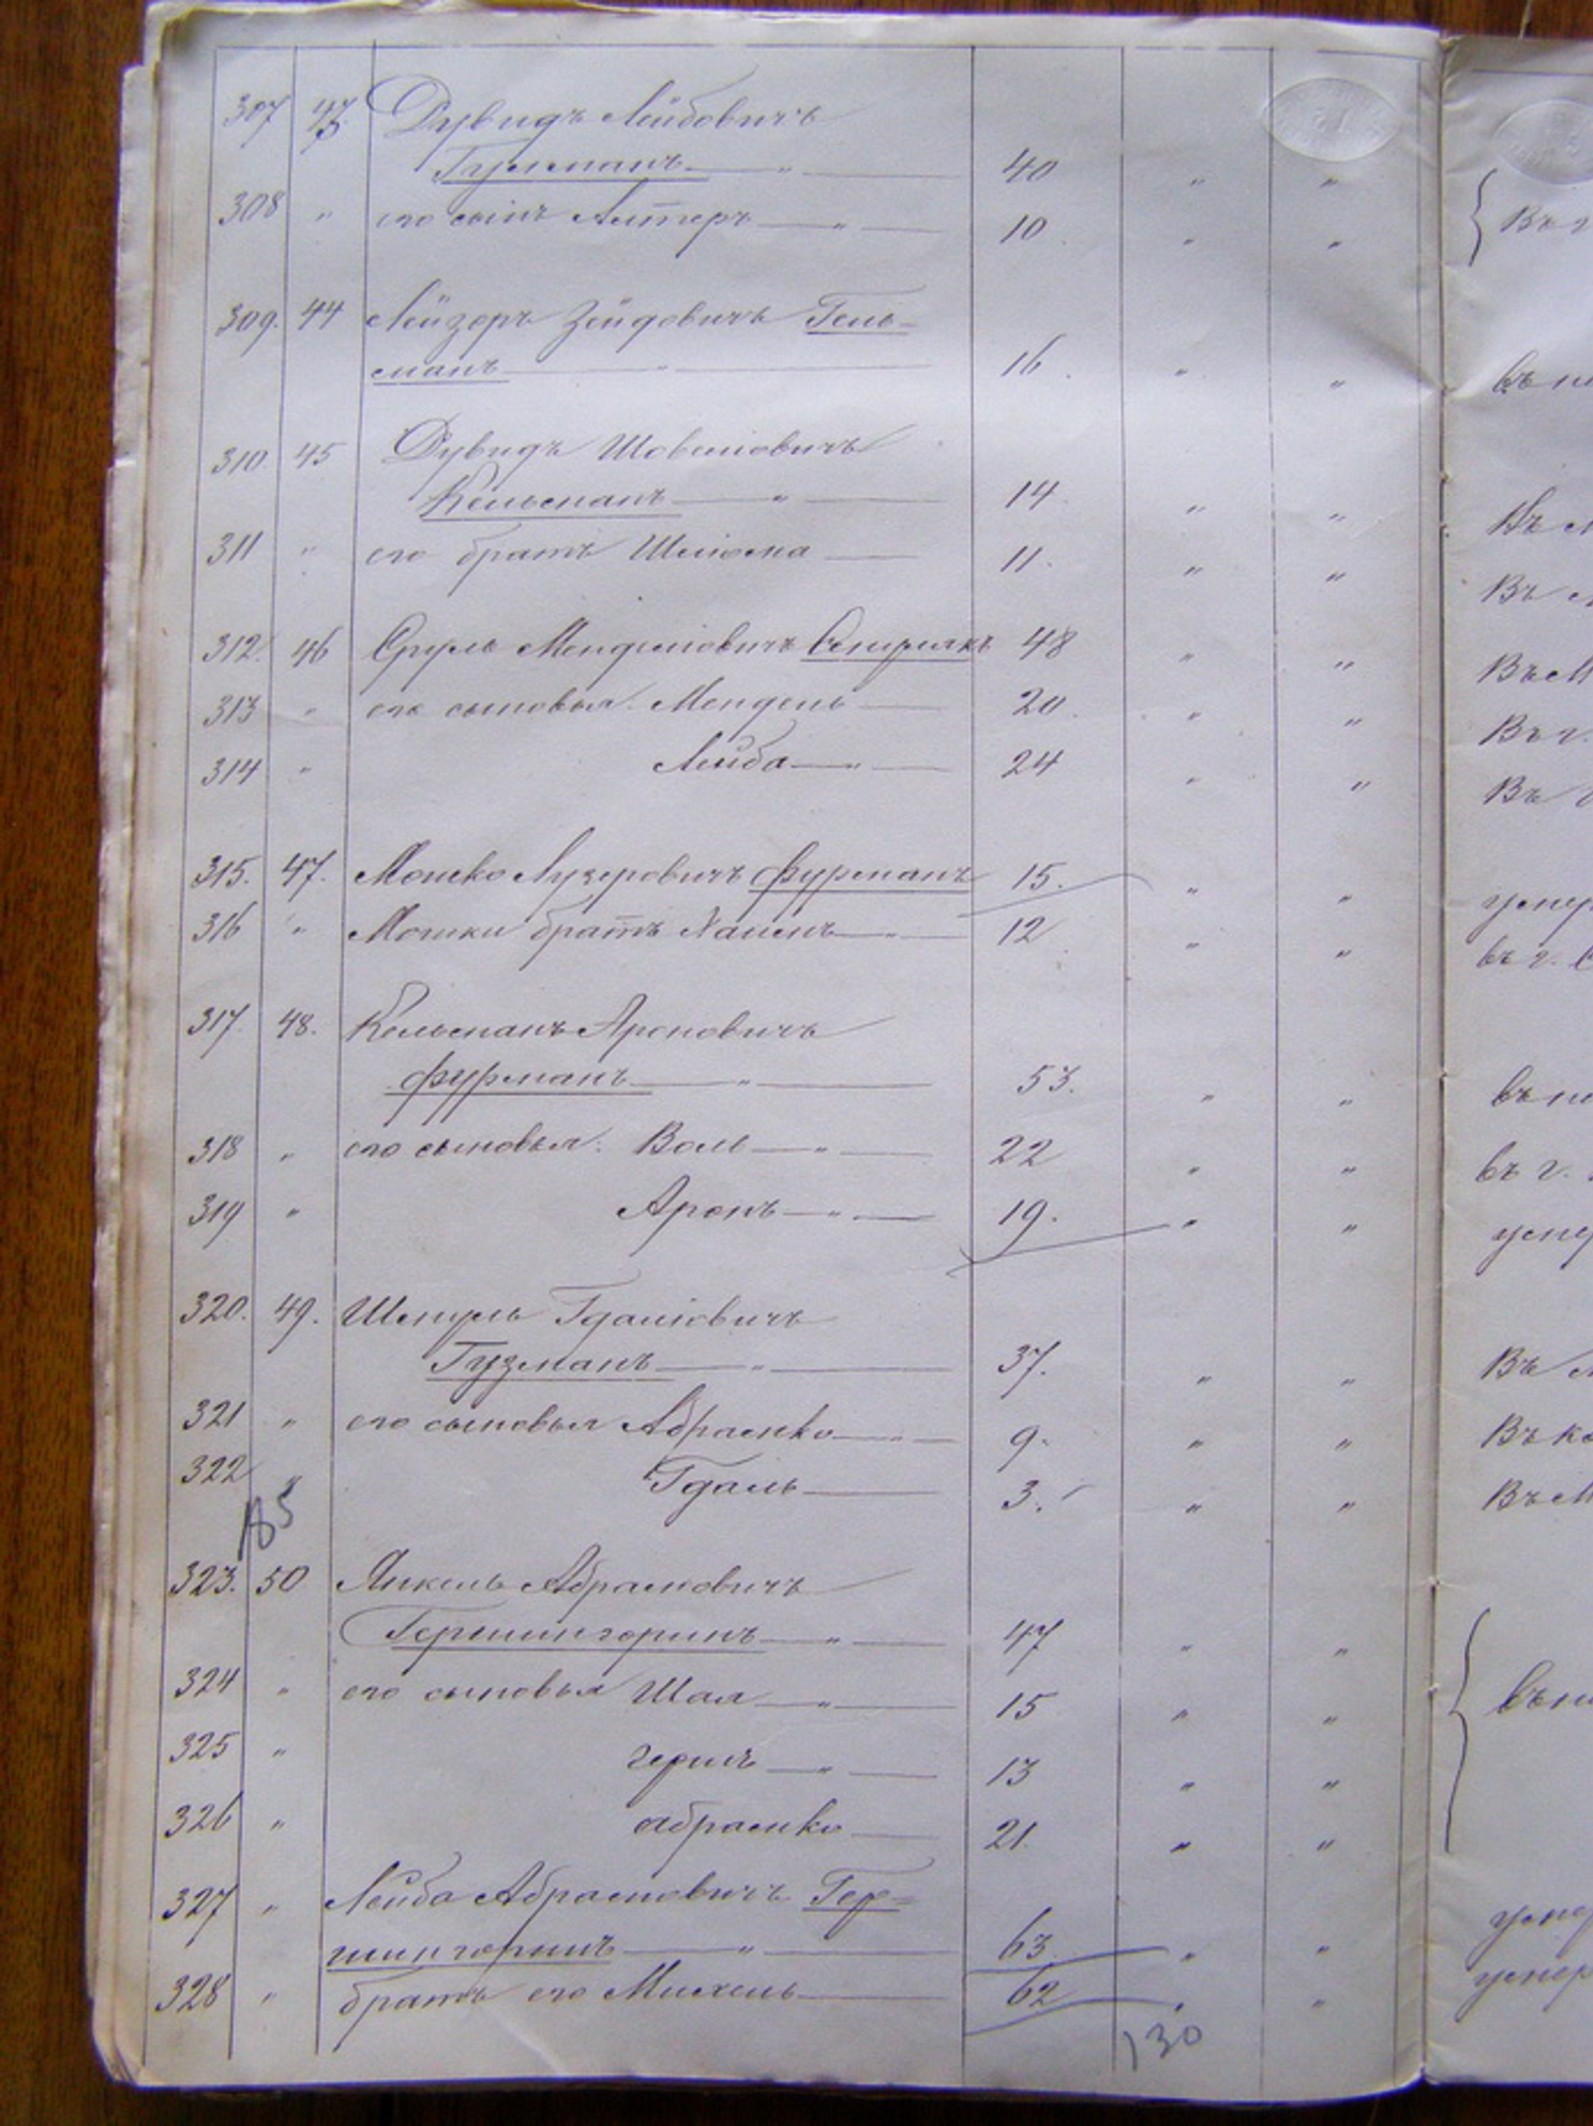 307 43 Дувидъ Лейбовичъ
Гухманъ — " — 40 " "
308 " его сынъ Алтеръ — " — 10 " "
Въ г
309. 44 Лейзеръ Зейдовичъ Гель=
манъ — " — 16. " "
въ
310 45 Дувидъ Шовеловичъ
Кельманъ — " — 14 " "
311 " его братъ Шлiома — 11. " "
Въ
312. 46 Сруль Менделiовичъ 48 " "
Въ М
313 " его сыновья. Мендель — 20 " "
Въ г.
314 " Лейба — " — 24 " "
Въ
315. 47. Мошко Лузеровичъ Фурманъ 15. " "
316 " Мошки братъ Хаимъ — " — 12 " "
въ г. С
317. 48. Кельманъ Ароновичъ
Фурманъ — " — 53. " "
318 " его сыновья:Воль — " — 22 " "
въ г.
319 " Аронъ — " — 19. " "
320. 49. Шмуль Гдалiовичъ
Гузманъ — " — 37. " "
Въ
321 " его сыновья Абрамко — " — 9. " "
Въ ка
322 " Гдаль — 3. " "
Въ М
185
323. 50 Янкель Абрамовичъ
Гершингоринъ — " — 47 " "
324 " его сыновья Шая — " — 15 " "
325 " Гершъ — " — 13 " "
326 " Абрамко — 21. " "
327 " Лейба Абрамовичъ Гер=
шингоринъ — " — 63. " "
328 " братъ его Михель — 62 " "
130